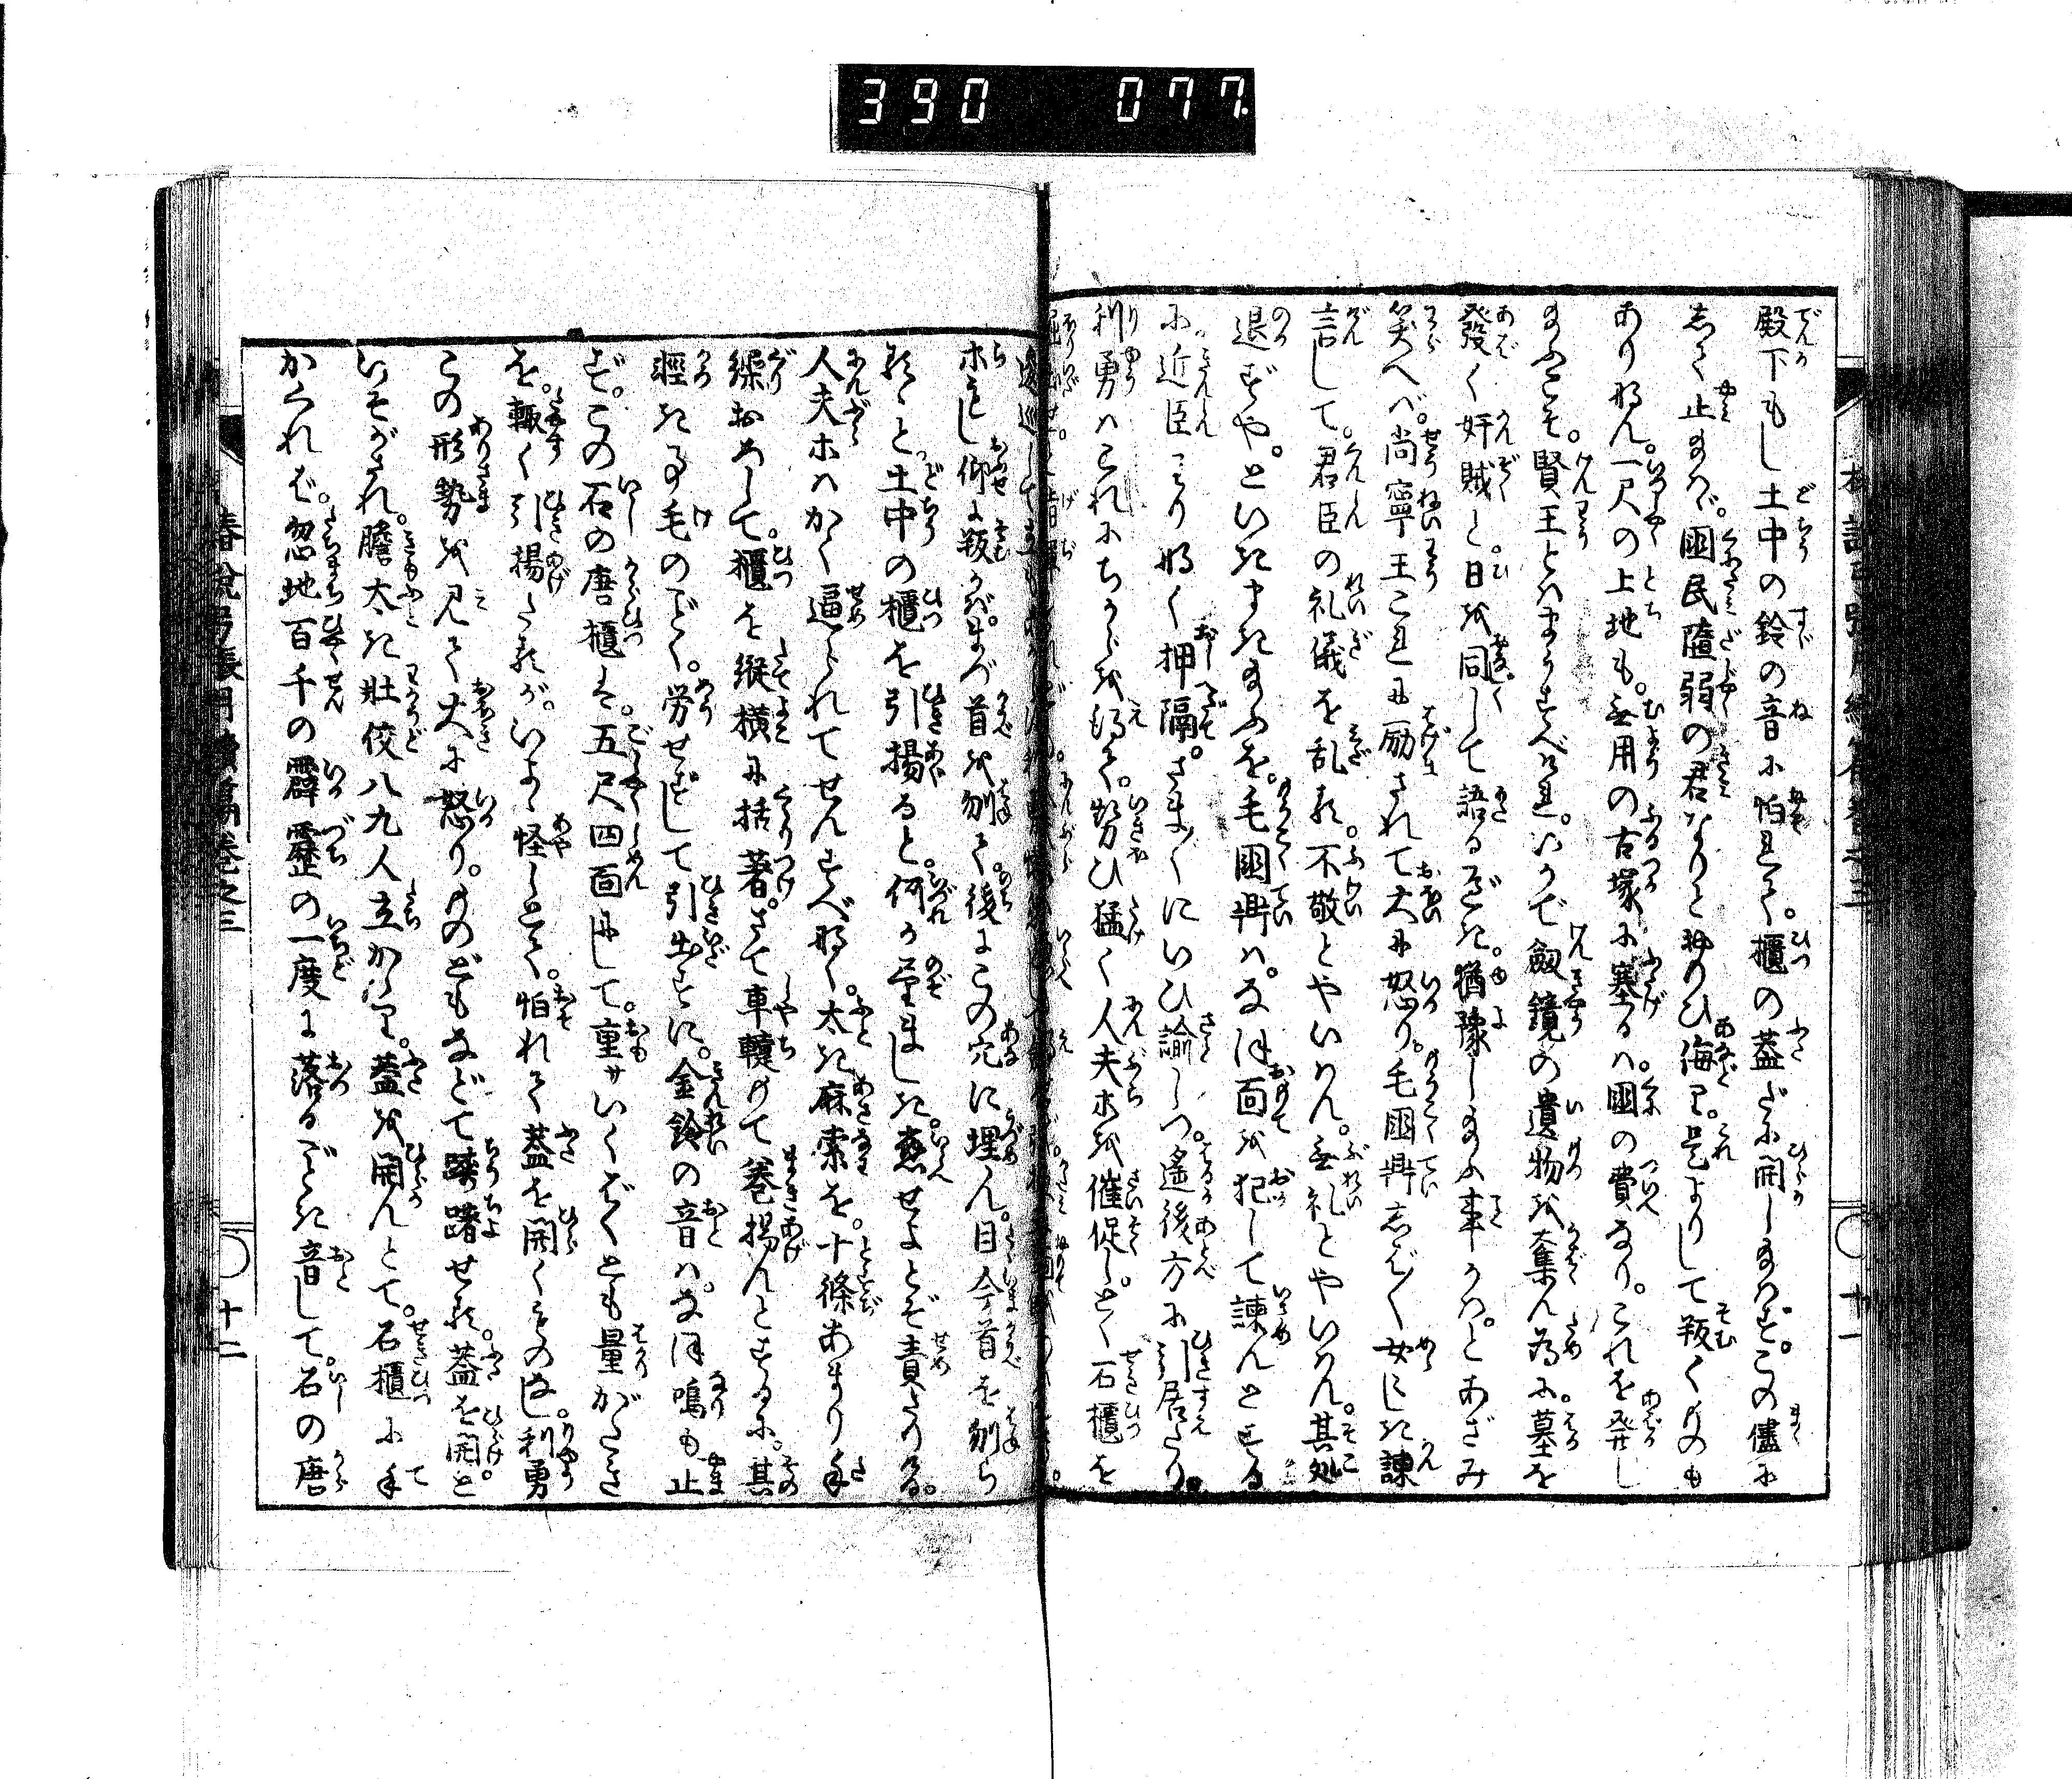 390 077
殿下もし土中の鈴の音に怕れて。櫃の蓋だに開し給はず。この儘に
あらく止給はゞ。國民隨弱の君なりと思ひ侮り。是よりして叛くものも
ありなん。一尺の土地も。無用の古塚に塞るは。國の費なり。これを発し
給ふこそ。賢王とはまうすべけれ。いかで劔鏡の遺物を奪ん為に。墓を
發く奸賊と。日を同くして語るべき。猶豫し給ふ事かは。とあざみ
笑へば。尚寧王これに励されて大に怒り。毛國鼎しば〳〵女々しき諫
言して。君臣の礼儀を乱る。不敬とやいはん。無礼とやいはん。其処
退ずや。といきまき給ふを。毛國鼎は。なほ面を犯して諫んとする
に。近臣これりなく押隔。さま〴〵にいひ諭しつ。遙後方に引居たり。
利勇はこれにちからを得て。勢ひ猛く人夫ホを催促し。とく石櫃を
ホもし仰に叛かば。まづ首を刎て。後にこの穴に埋ん。目今首を刎ら
るゝと土中の櫃を引揚ると。何か望ましき。應せよとぞ責たりける。
人夫ホはかく逼られてせんすべなく。太き麻索を。十條あまり手
繰おろして。櫃を縦横に括著。さて車轆もて巻揚んとするに。其
輕き事毛のごとく。労せずして引出すに。金鈴の音は。なほ鳴も止
ず。この石の唐櫃は。五尺四面にして。重サいくばくとも量がたき
を。輙く引揚たるが。いよゝ怪しとて。怕れて蓋を開くものなし。利勇
この形勢を見て大に怒り。ものどもなどて躊躇せる。蓋を開と
いそがされ。膽太き壮佼八九人立かゝり。蓋を開んとて。石櫃に手を
かくれば。忽地百千の霹靂の一度に落るごとき音して。石の唐
春説弓張月續編巻之三
十一
十二